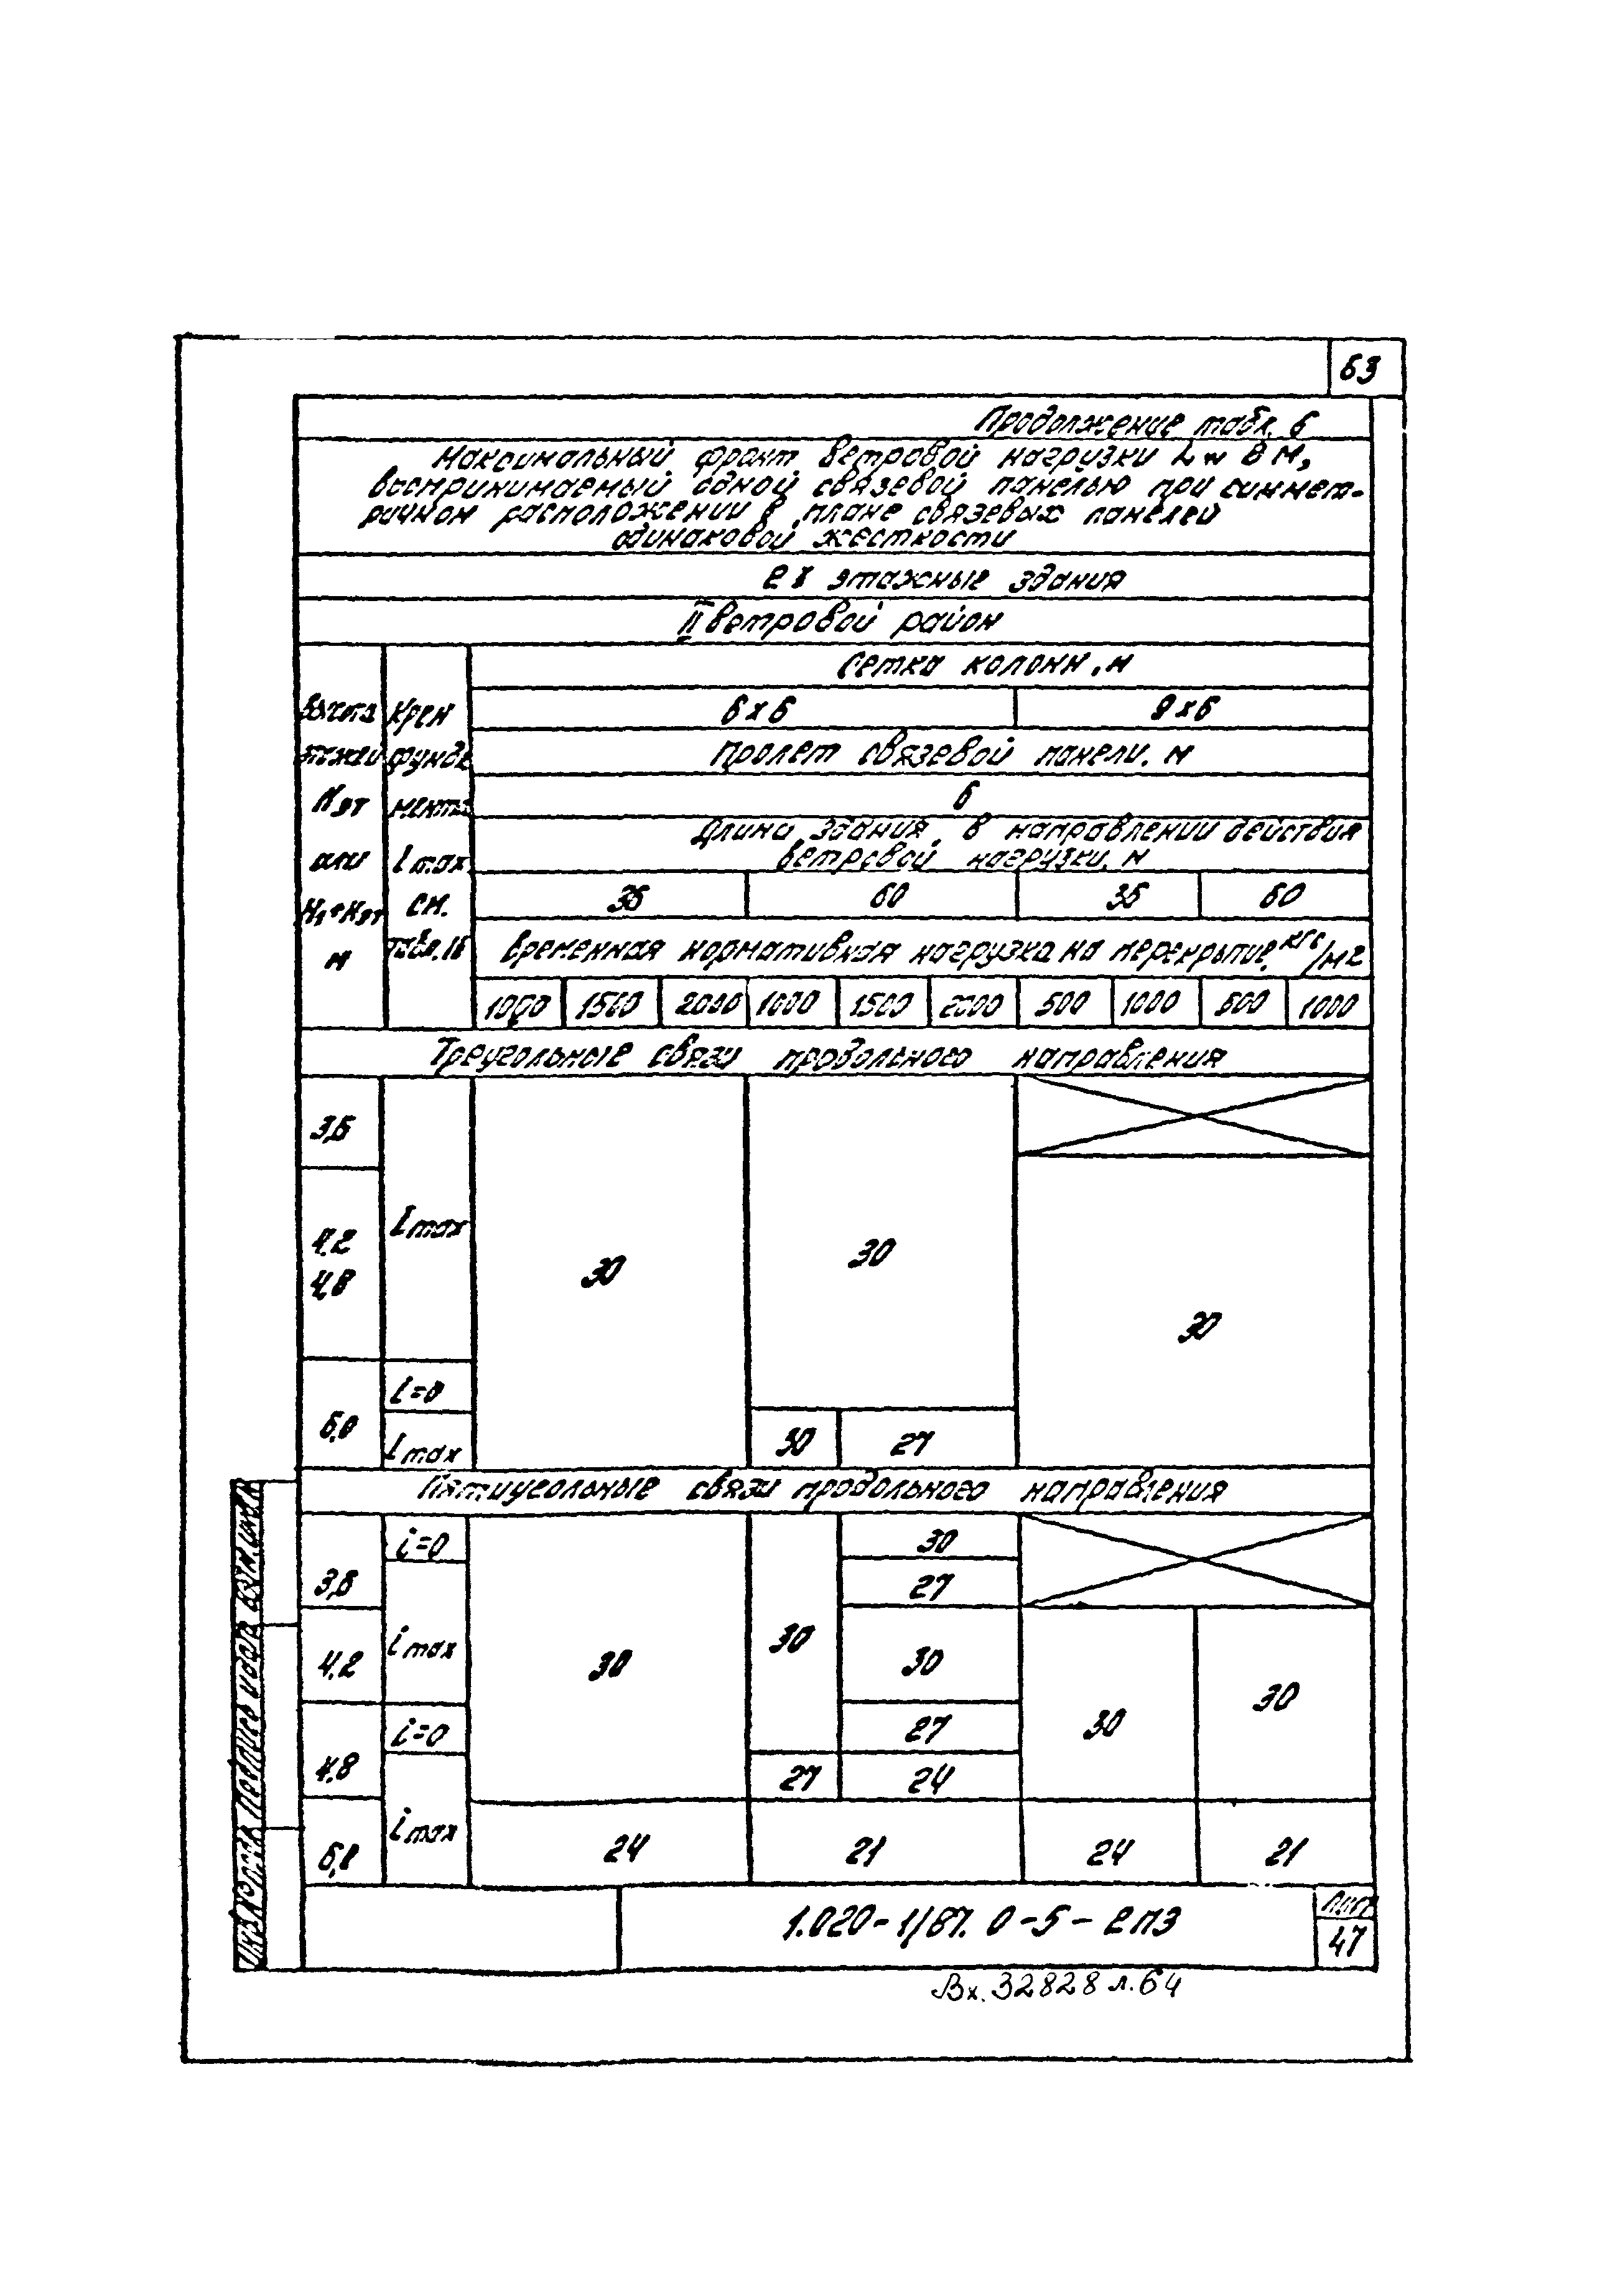 63
Продолжение табл. 6
Максимальный фронт ветровой нагрузки Lw в м,
воспринимаемый одной связевой панелью при симмет-
ричном расположении в плане связевых панелей
одинаковой жесткости
2х этажные здания
II ветровой район
Высота этажей Нэт или Н1+Нэт м
Крен фунда мента imax см. табл. 16
Сетка колонн, м
6х6 9х6
Пролет связевой панели, м
6
Длина здания в направлении действия
ветровой нагрузки, м
36 60 36 60
Временная нормативная нагрузка на перекрытие, кгс/м2
1000 1500 2000 1000 1500 2000 500 1000 500 1000
Треугольные связи продольного направления
3,6
imax
4,2
4,8
30
30
30
6,0
i=0
imax
30 27
Пятиугольные связи продольного направления
3,6
i=0
30
27
4,2
imax
30
30
30
30
30
4,8
i=0
27
27 24
6,0
imax
24 21 24 21
1.020-1/87. 0-5-2ПЗ
Лист
47
Вх. 32828 л. 64